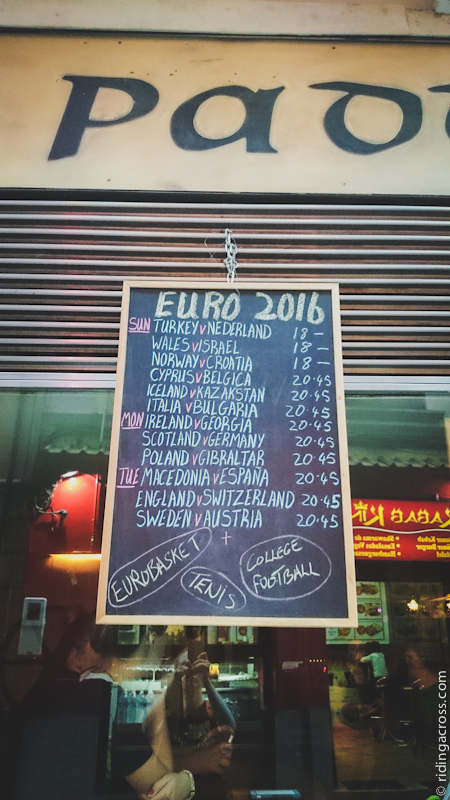 Padd
EURO 2016
SUN TURKEY v NEDERLAND 18 -
WALES v ISRAEL 18 -
NORWAY v CROATIA 18 -
CYPRUS v BELGICA 20.45
ICELAND v KAZAKSTAN 20.45
ITALIA v BULGARIA 20.45
MON IRELAND v GEORGIA 20.45
SCOTLAND v GERMANY 20.45
POLAND v GIBRALTAR 20.45
TUE MACEDONIA v ESPAÑA 20.45
ENGLAND v SWITZERLAND 20.45
SWEDEN v AUSTRIA 20.45
+
EUROBASKET
TENIS
COLLEGE
FOOTBALL
© ridingacross.com